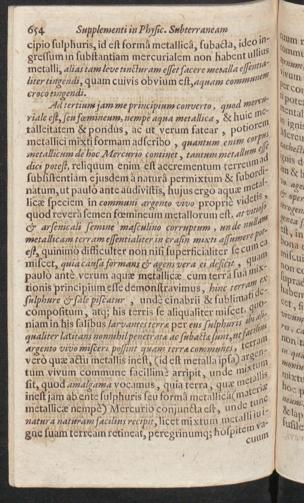 654 Supplementi in Physic. Subterraneam
cipio sulphuris, id est formâ metallicâ, subacta, ideo in-
gressum in substantiam mercurialem non habent ullius
metalli, alias tam leve tincturam esset facere metalla essentia-
liter tingendi, quam cuivis obvium est, aquam communem
croco tingendi.
Ad tertium jam me principium converto, quod mercu-
riale est, seu fœmineum, nempe aqua metallica, & huic me-
talleitatem & pondus, ac ut verum fatear, potiorem
metallici mixti formam adscribo, quantum enim corpus
metallicum de hoc Mercurio continet, tantum metallum esse
dici potest, reliquum enim est accrementum terreum ad
subsistentiam ejusdem à natura permixtum & subordi-
natum, ut paulò ante audivistis, hujus ergo aquæ metal-
licæ speciem in communi argento vivo propriè videtis,
quod reverà semen fœmineum metallorum est, at vitioso
& arsenicali semine masculino corruptum, unde nullam
metallicam terram essentialiter in crasin mixti assumere pot-
est, quinimò difficulter non nisi superficialiter se cum ea
miscet, quia causa formans & agens vera ei deficit, quam
paulò ante verum aquæ metallicæ cum terra sua mix-
tionis principium esse demonstravimus, hinc terram ex
sulphure & sale piscatur, unde cinabrii & sublimati de-
compositum, atq; his terris se aliqualiter miscet, quo-
niam in his salibus larvantes terræ per eus sulphuris sui ali-
qualiter latitans nonnihil penetrata ac subacta sunt, ut facilius
argento vivo misceri possint quam terra communis, terram
verò quæ actu metallis inest, (id est metalla ipsa) argen-
tum vivum commune facillimè arripit, unde mixtum
fit, quod amalgama vocamus, quia terra, quæ metallis
inest jam ab ente sulphuris seu formâ metallicâ (materiæ
metallicæ nempè) Mercurio conjuncta est, unde tunc
natura naturam facilius recipit, licet mixtum metalli in-
gne suam terream retineat, peregrinumq; hospitem va-
cuum